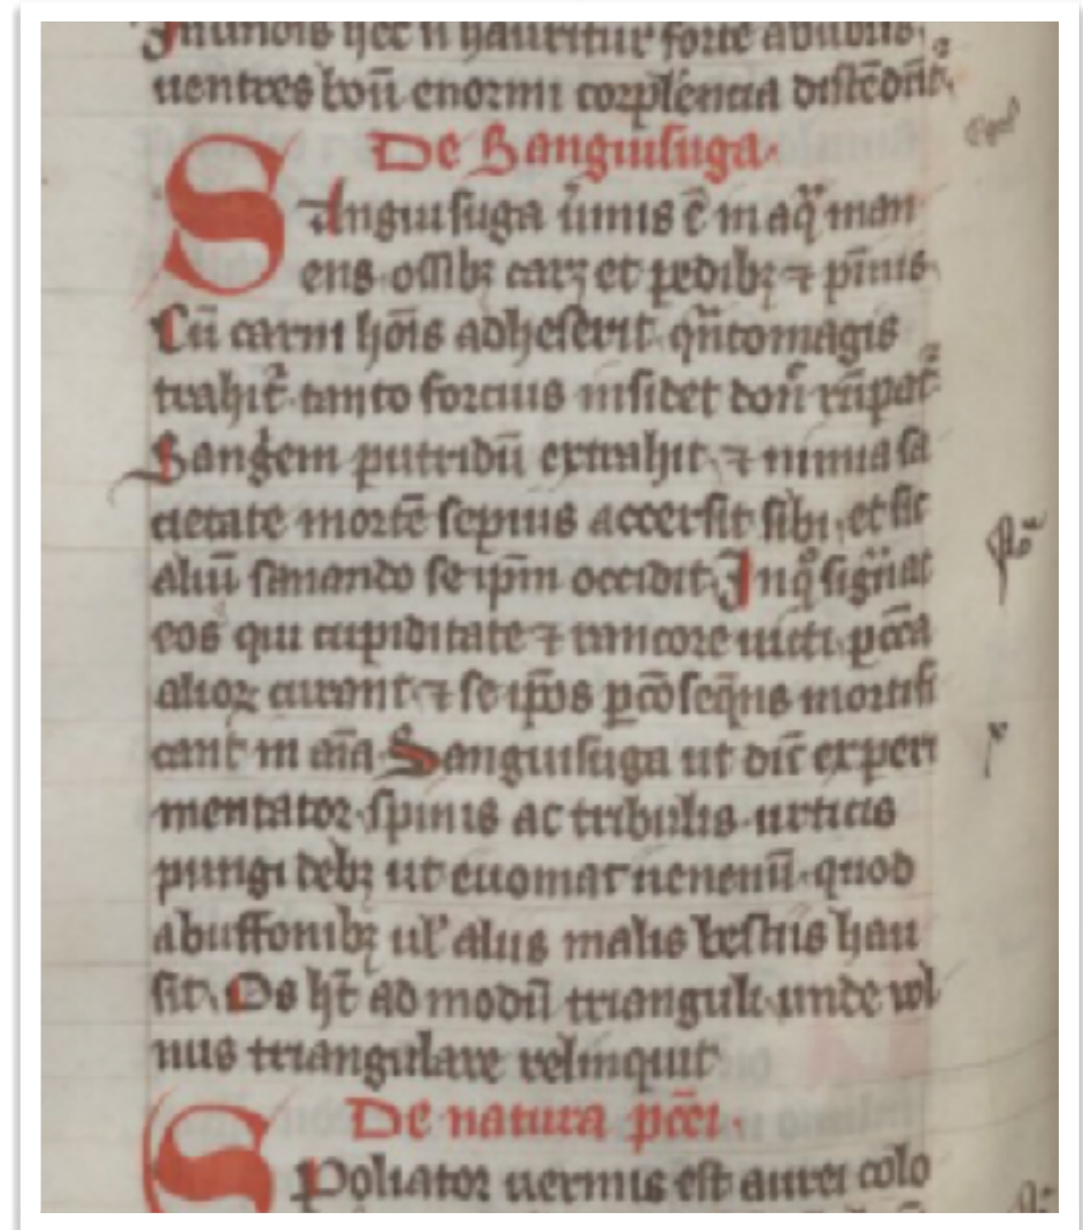 uentres boū enormi corpulentia distēdūt᷑.
De Sanguisuga.
SAnguisuga u᷑mis ē in aq̄ man
ens. ossibꝫ carꝫ et pedibꝫ ⁊ pīnis.
Cū carni hōis adheserit. qn̄tomagis
trahit᷑. tanto forcius insidet don̄ rūpat᷑.
Sangēm putridū extrahit. ⁊ nimia sa
cietate mortē sepius accersit sibi, et sic
aliū sanando se ip̄m occidit. In qͦ signāt
eos qui cupiditate ⁊ rancore uicti. pccā
alioꝝ curant. ⁊ se ip̄os pccō seq̄ns mortifi
cant in aīa. Sanguisuga ut dic̄ experi
mentator. spinis ac tribulis. urticis
pungi debꝫ ut euomat uenenū. quod
abuffonibꝫ ul᷑ aliis malis bestiis hau
sit. Os hꝫ ad modū trianguli. unde vl
nus triangulare relinquit
De natura
SPoliator uermis est aurei colo